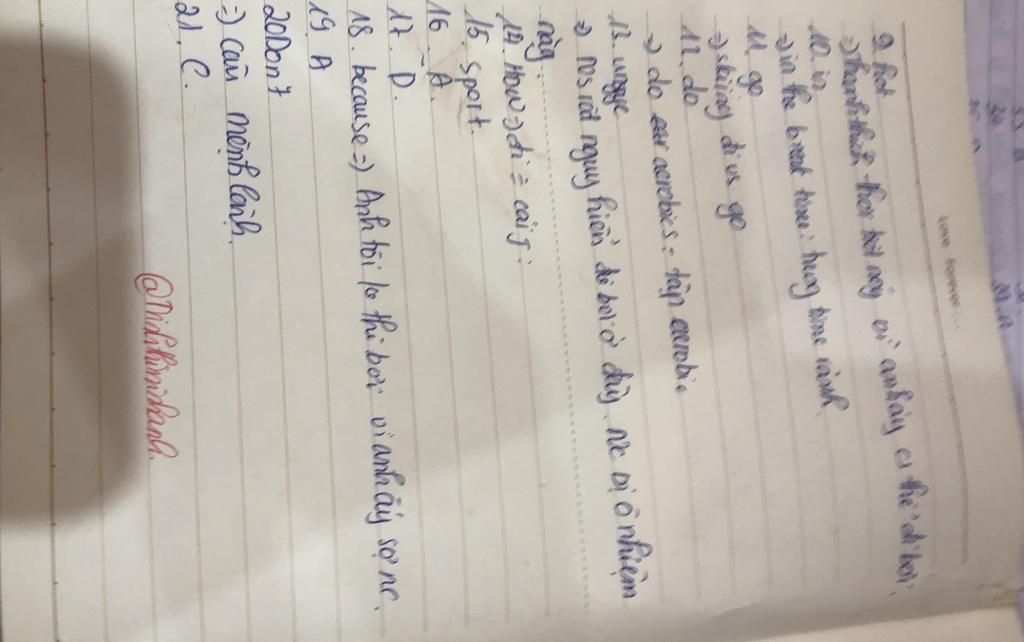 Love Forever...
9. hot
=> Thanh thích thời tiết nóng vì anh ấy có thể đi bơi.
10. in
=> in the break time: trong time rảnh
11. go
=> skiing đi vs go
12. do
=> do aerobics = tập aerobic
13.
=> rất nguy hiểm để bơi ở đây. nc bị ô nhiễm
nặng.
14. How => đi = cái gì
15. sport.
16. A.
17. D.
18. because => Anh tôi k thi bơi vì anh ấy sợ nc.
19 A
20 Don't
=> câu mệnh lệnh.
21. C.